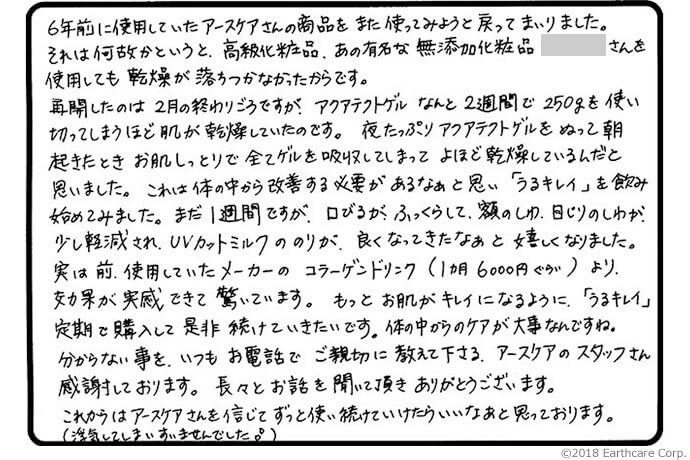 6年前に使用していたアースケアさんの商品をまた使ってみようと戻ってまいりました。
それは何故かというと、高級化粧品、あの有名な無添加化粧品 さんを
使用しても乾燥が落ちつかなかったからです。
再開したのは2月の終わりごろですが、アクアテクトゲルなんと2週間で250gを使い
切ってしまうほど肌が乾燥していたのです。夜たっぷりアクアテクトゲルをぬって朝
起きたときお肌しっとりで全てゲルを吸収してしまってよほど乾燥しているんだと
思いました。これは体の中から改善する必要があるなぁと思い「うるキレイ」を飲み
始めてみました。まだ1週間ですが、口びるが、ふっくらして、額のしわ、目じりのしわが、
少し軽減され、UVカットミルクののりが、良くなってきたなぁと嬉しくなりました。
実は前、使用していたメーカーのコラーゲンドリンク(1カ月6000円ぐらい)より、
効果が実感できて驚いています。もっとお肌がキレイになるように、「うるキレイ」
定期で購入して是非続けていきたいです。体の中からのケアが大事なんですね。
分からない事を、いつもお電話でご親切に教えて下さる、アースケアのスタッフさん
感謝しております。長々とお話を聞いて頂きありがとうございます。
これからはアースケアさんを信じてずっと使い続けていけたらいいなあと思っております。
(浮気してしまいすいませんでした。)
©2018 Earthcare Corp.